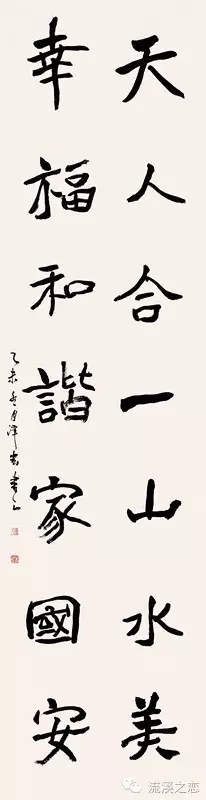 天人合一山水美
幸福和諧家國安
乙未冬月
流溪之恋